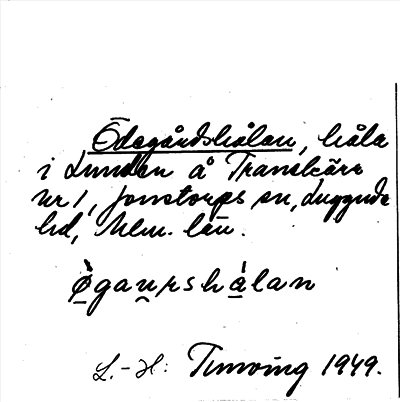 Ödegårdshålan, håla
i Lunden å Transkärr
nr 1, Jonstorps sn, Luggude
hd, Mlm. län.
ø̀gau̯rshálan
L.-H: Tunving 1949.